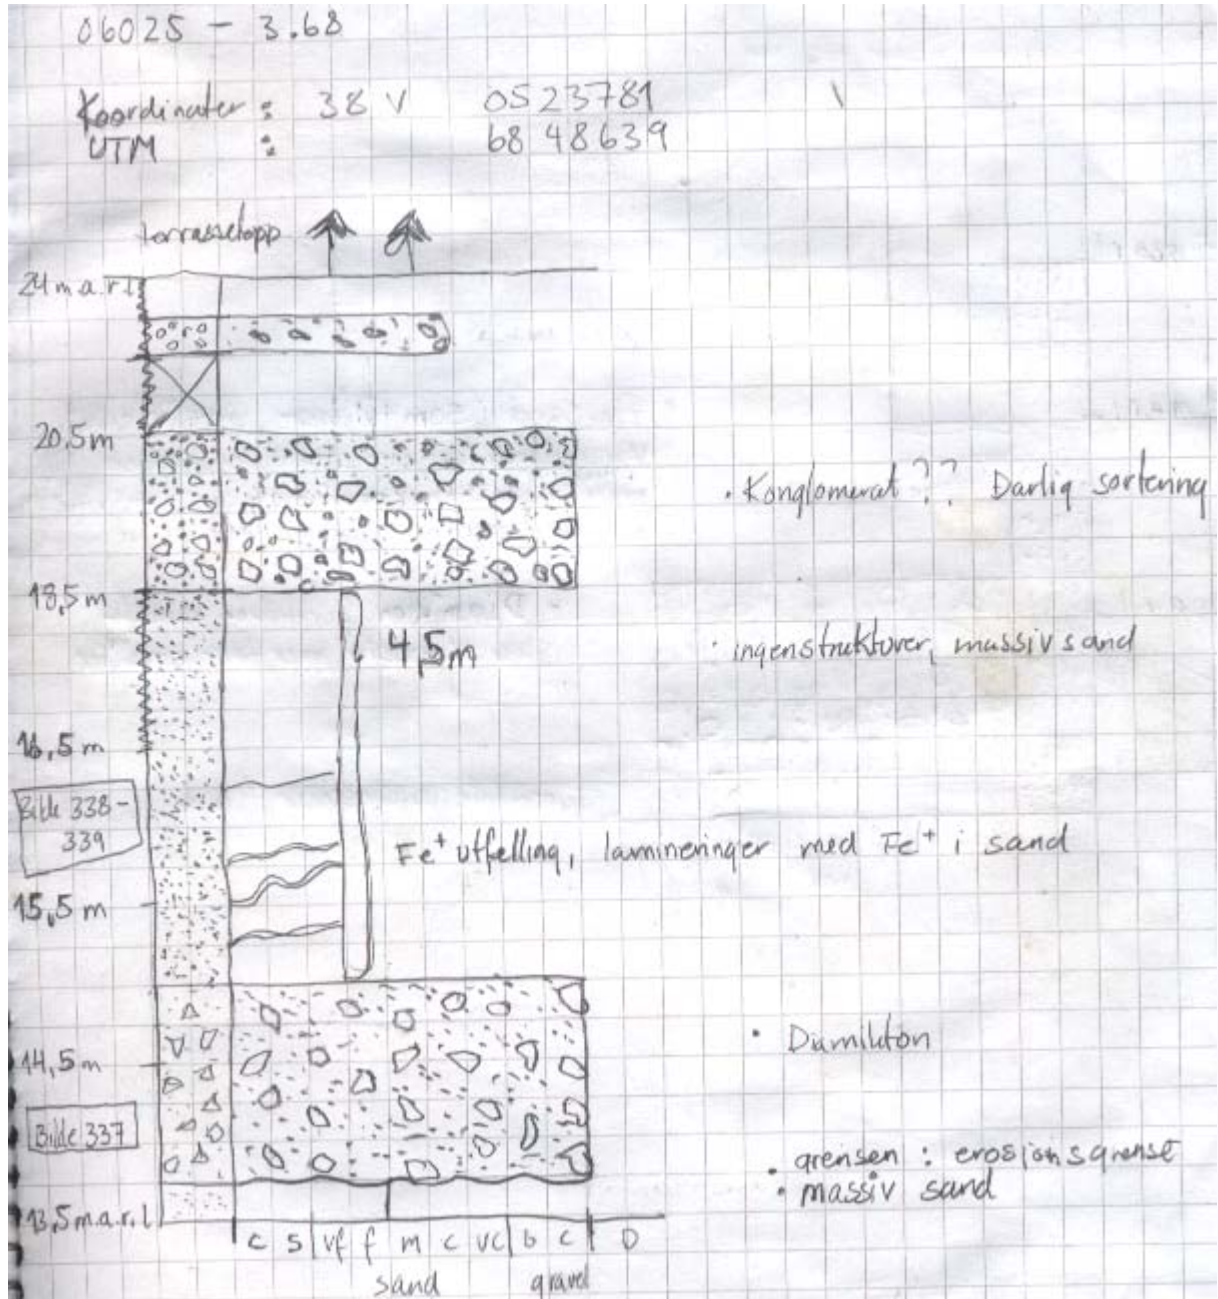 06025 - 3.68
Koordinater : 38 V 0523781
UTM : 6848639
terrassetopp
24 m a.r.l
20,5m
• Konglomerat ?? Darlig sortering
18,5m
4,5m
ingen strukturer, massiv sand
16,5 m
Bilde 338-
339
Fe+ utfelling, lamineringer med Fe+ i sand
15,5 m
• Diamikton
14,5m
Bilde 337
• grensen : erosjonsgrense
• massiv sand
13,5 m.a.r.l
c s vf f m c vc b c D
sand gravel